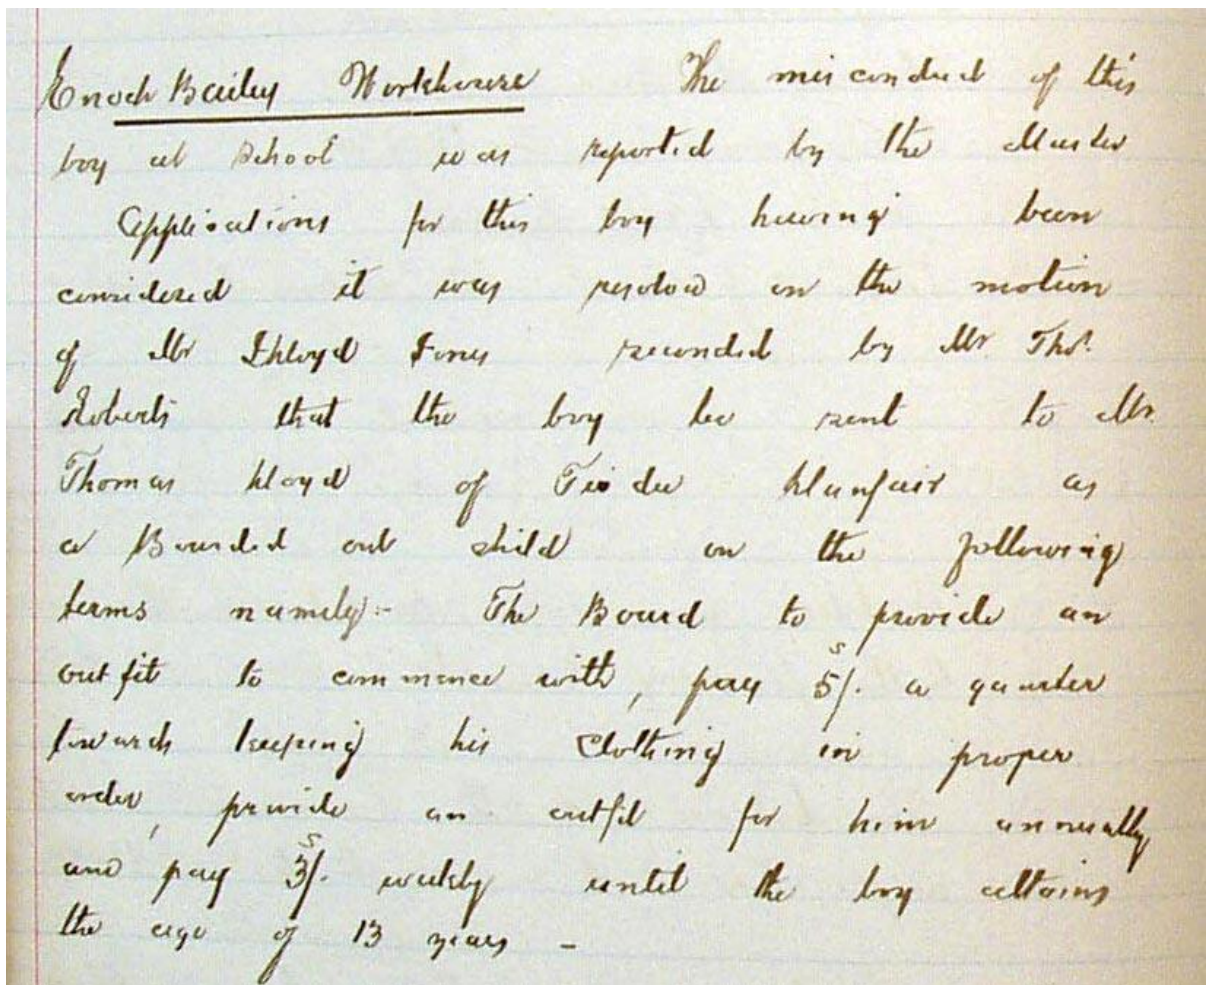 Enoch Bailey Workhouse The misconduct of this
boy at School was reported by the Master
Applications for this boy having been
considered it was resolved on the motion
of Mr Lloyd Jones seconded by Mr Thos.
Roberts that the boy be sent to Mr.
Thomas Lloyd of Llanfair as
a Boarded out child on the following
terms namely:- The Board to provide an
outfit to commence with, pay 5s/. a quarter
towards keeping his Clothing in proper
order, provide an outfit for him annually
and pay 3s/. weekly until the boy attains
the age of 13 years –